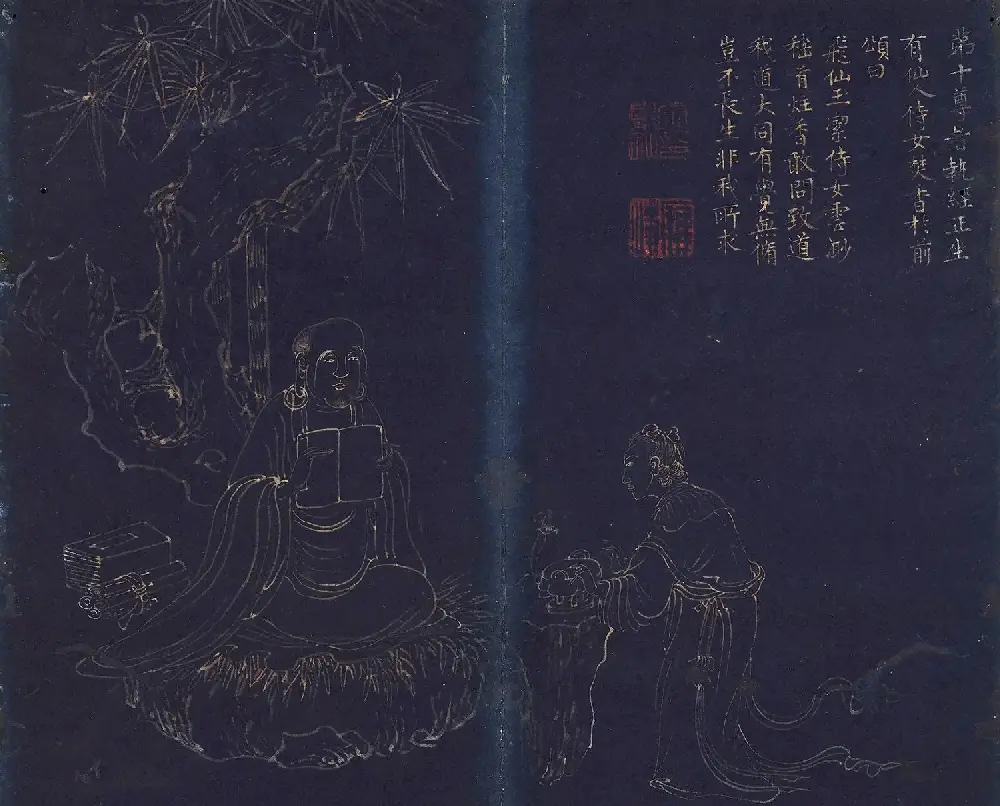 第十尊者執經正坐
有仙人侍女焚香於前
頌曰
飛仙玉潔侍女雲眇
稽首炷香敢問致道
我道大同有覺無脩
豈不長生非我所求